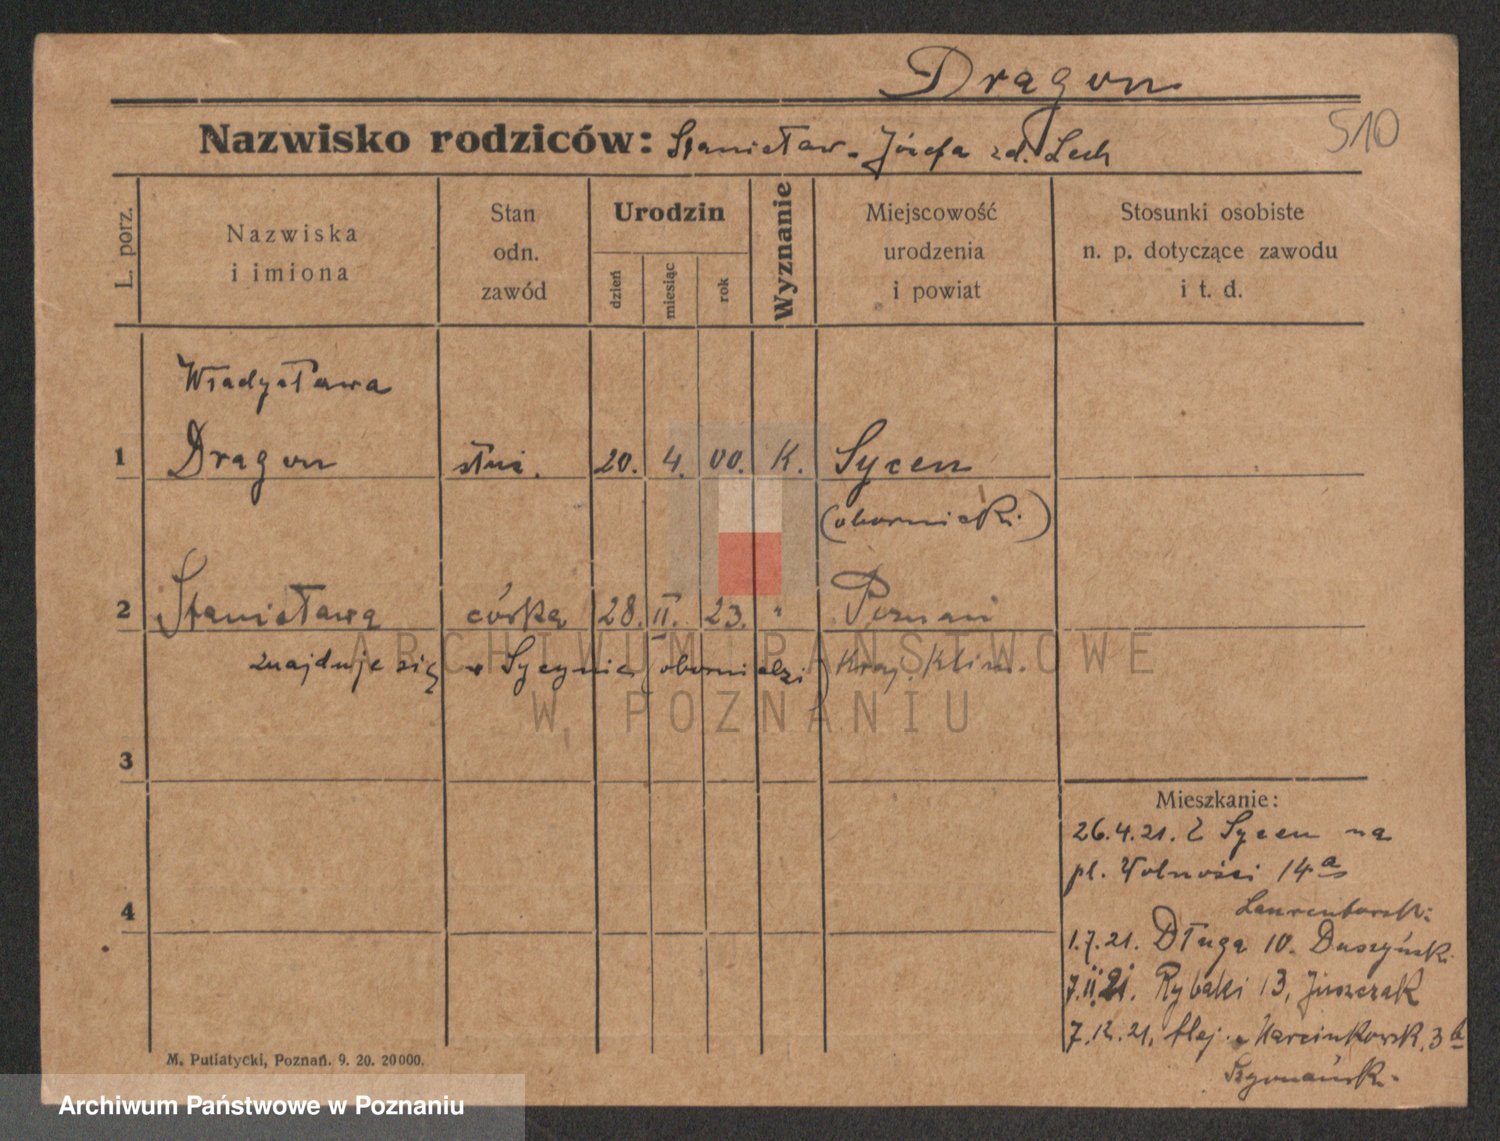 Dragon
Nazwisko rodziców: Stanisław - Józefa zd. Lech
510
L. porz.
Nazwiska
i imiona
Stan
odn.
zawód
Urodzin
dzień
miesiąc
rok
Wyznanie
Miejscowość
urodzenia
i powiat
Stosunki osobiste
n. p. dotyczące zawodu
i t. d.
Władysława
1 Dragon służ. 20. 4. 00. K. Sycen
(obornicki)
2 Stanisława córka 28. II. 23. " Poznań
znajduje się w Sycynie (obornicki) Kraj. Klin.
ARCHIWUM PAŃSTWOWE
W POZNANIU
3
Mieszkanie:
26.4.21. Z Sycen na
pl. Wolności 14a
4
1.7.21. Długa 10. Duszyński
7.11.21. Rybaki 13, Juszczak
7.12.21. Alej. Marcinkowsk. 3b
Szymański
M. Putiatycki, Poznań. 9. 20. 20000.
Archiwum Państwowe w Poznaniu